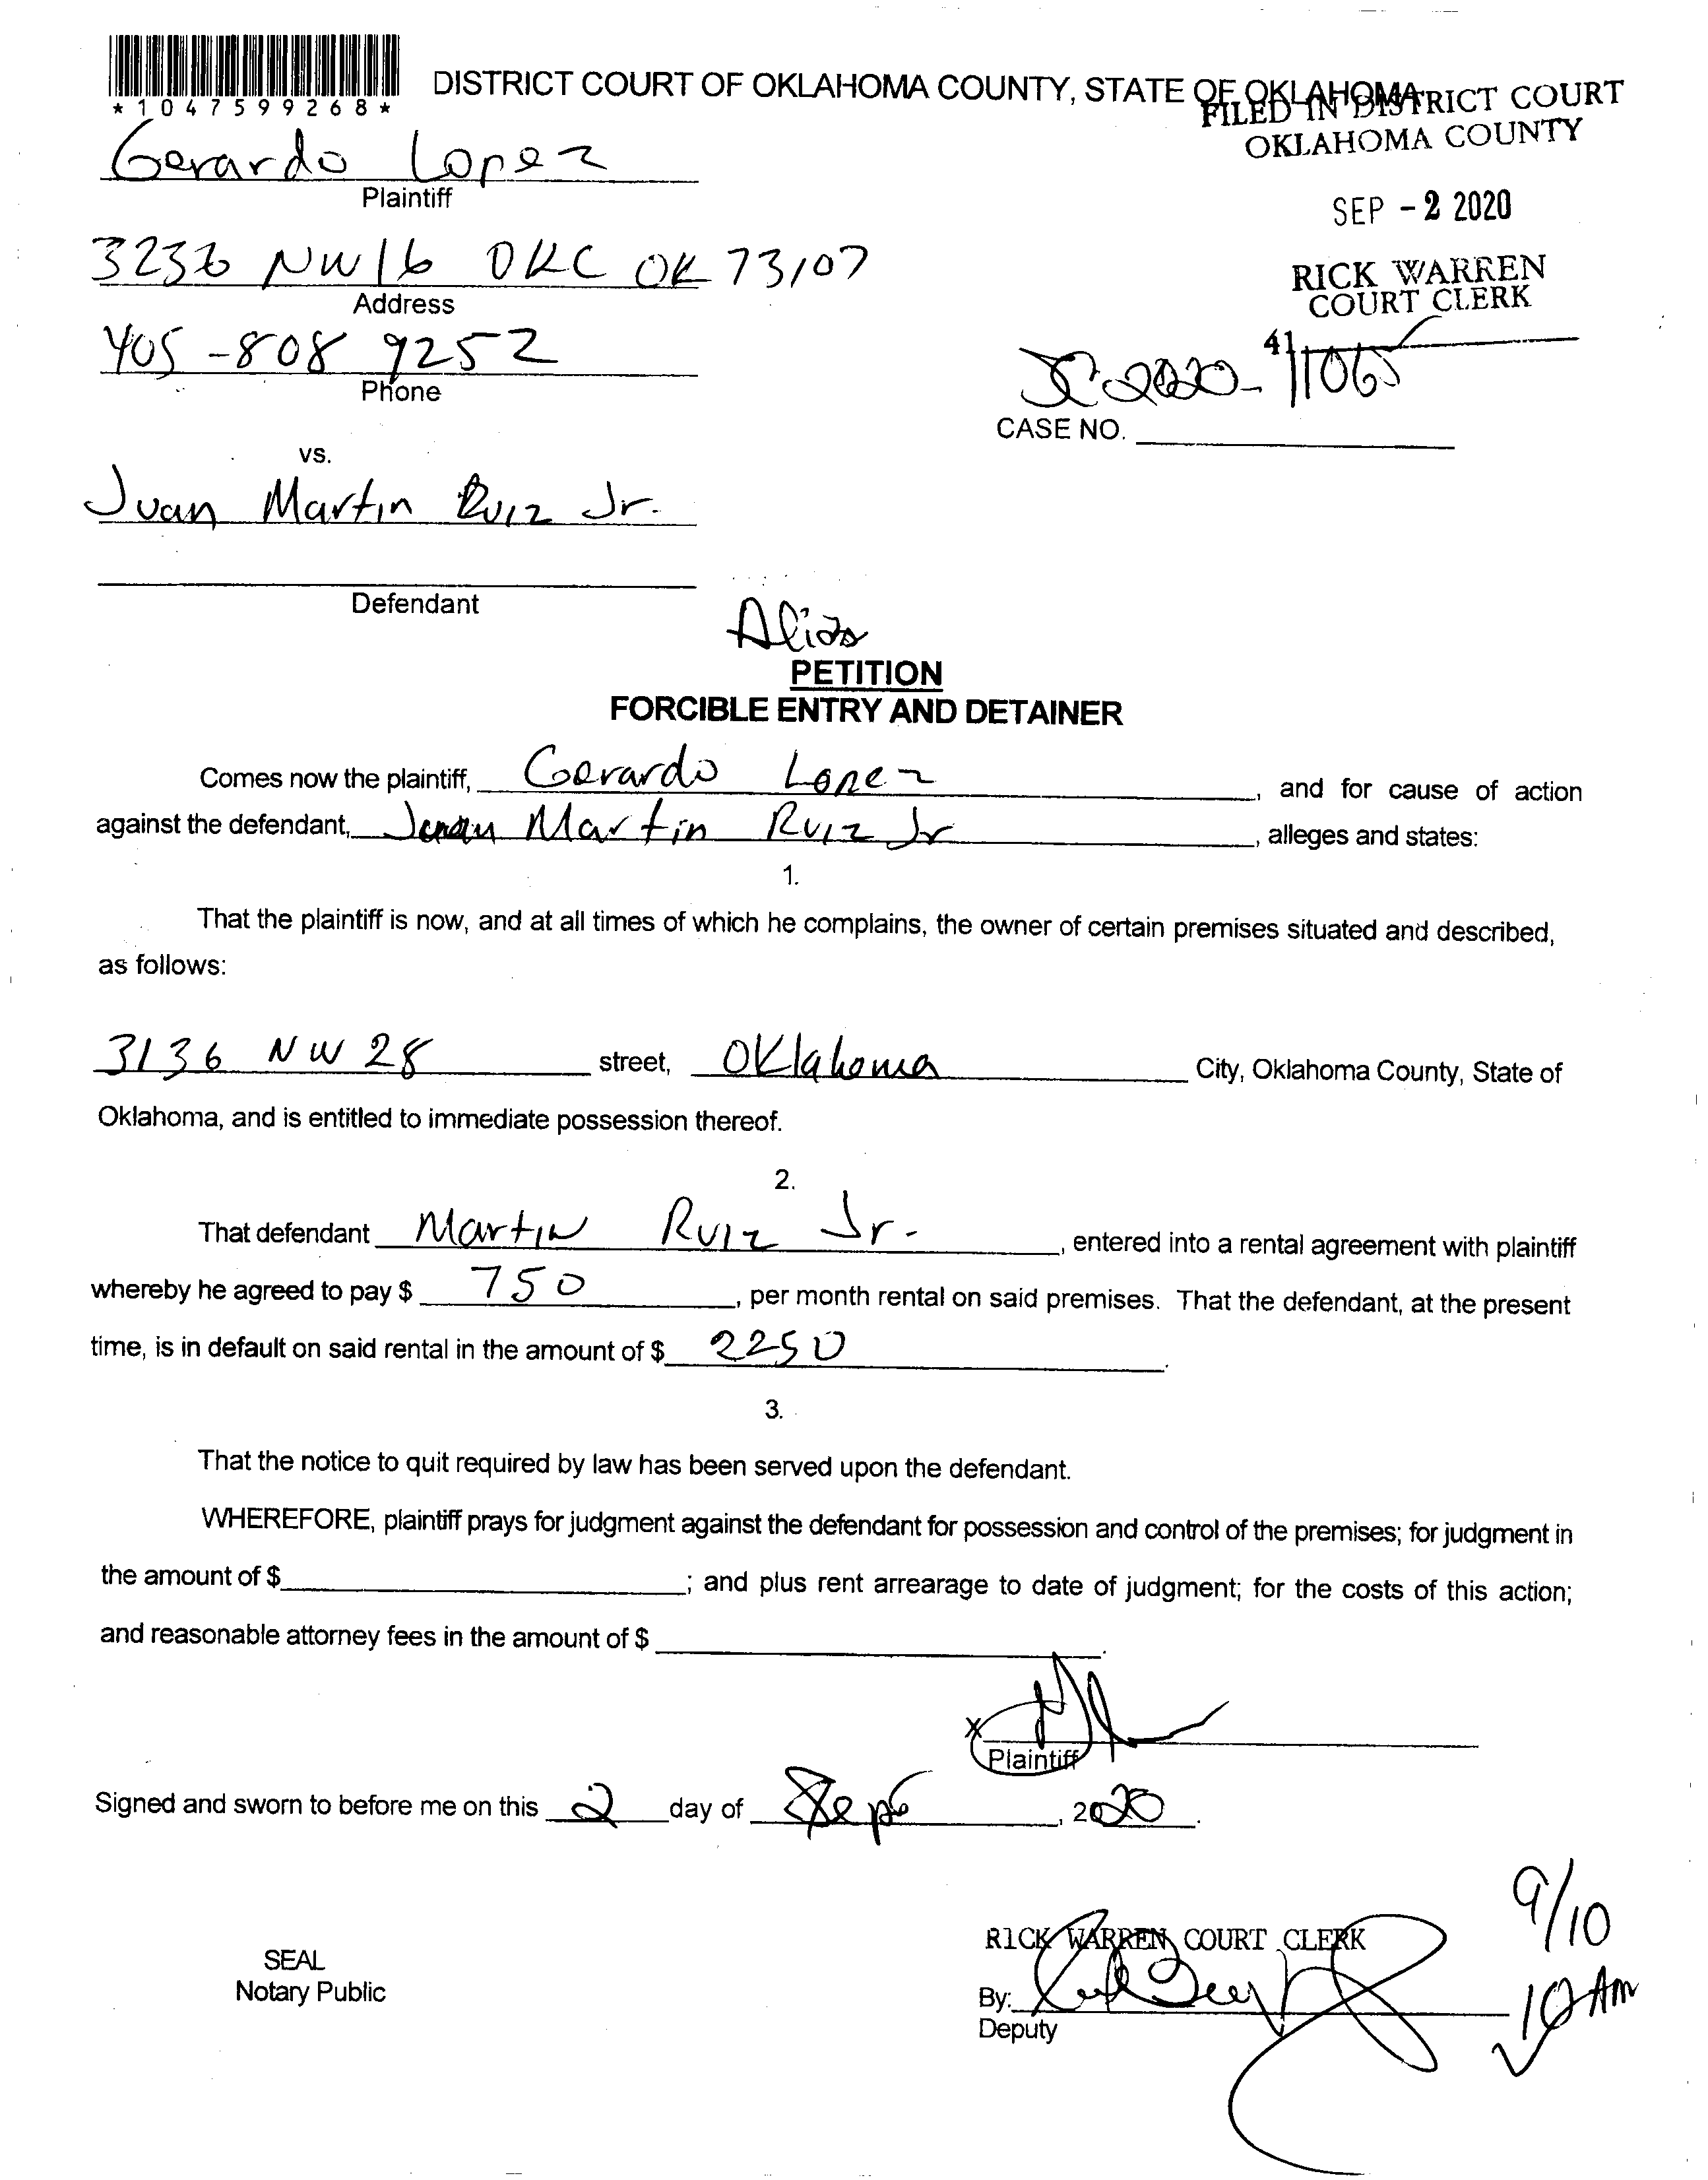 *1047599268*
DISTRICT COURT OF OKLAHOMA COUNTY, STATE OF OKLAHOMA
FILED IN DISTRICT COURT
OKLAHOMA COUNTY
Gerardo Lopez
Plaintiff
SEP - 2 2020
3236 NW 16 OKC OK 73107
Address
RICK WARREN
COURT CLERK
405-808 9252
Phone
41
SC-2020-11065
CASE NO.
vs.
Juan Martin Ruiz Jr.
Defendant
Alias
PETITION
FORCIBLE ENTRY AND DETAINER
Comes now the plaintiff, Gerardo Lopez, and for cause of action
against the defendant, Juan Martin Ruiz Jr, alleges and states:
1.
That the plaintiff is now, and at all times of which he complains, the owner of certain premises situated and described,
as follows:
3136 NW 28 street, Oklahoma City, Oklahoma County, State of
Oklahoma, and is entitled to immediate possession thereof.
2.
That defendant Martin Ruiz Jr., entered into a rental agreement with plaintiff
whereby he agreed to pay $ 750, per month rental on said premises. That the defendant, at the present
time, is in default on said rental in the amount of $ 2250.
3.
That the notice to quit required by law has been served upon the defendant.
WHEREFORE, plaintiff prays for judgment against the defendant for possession and control of the premises; for judgment in
the amount of $ ; and plus rent arrearage to date of judgment; for the costs of this action;
and reasonable attorney fees in the amount of $ .
X
Plaintiff
Signed and sworn to before me on this 2 day of Sept, 2020.
9/10
10 AM
RICK WARREN COURT CLERK
SEAL
Notary Public
By:
Deputy